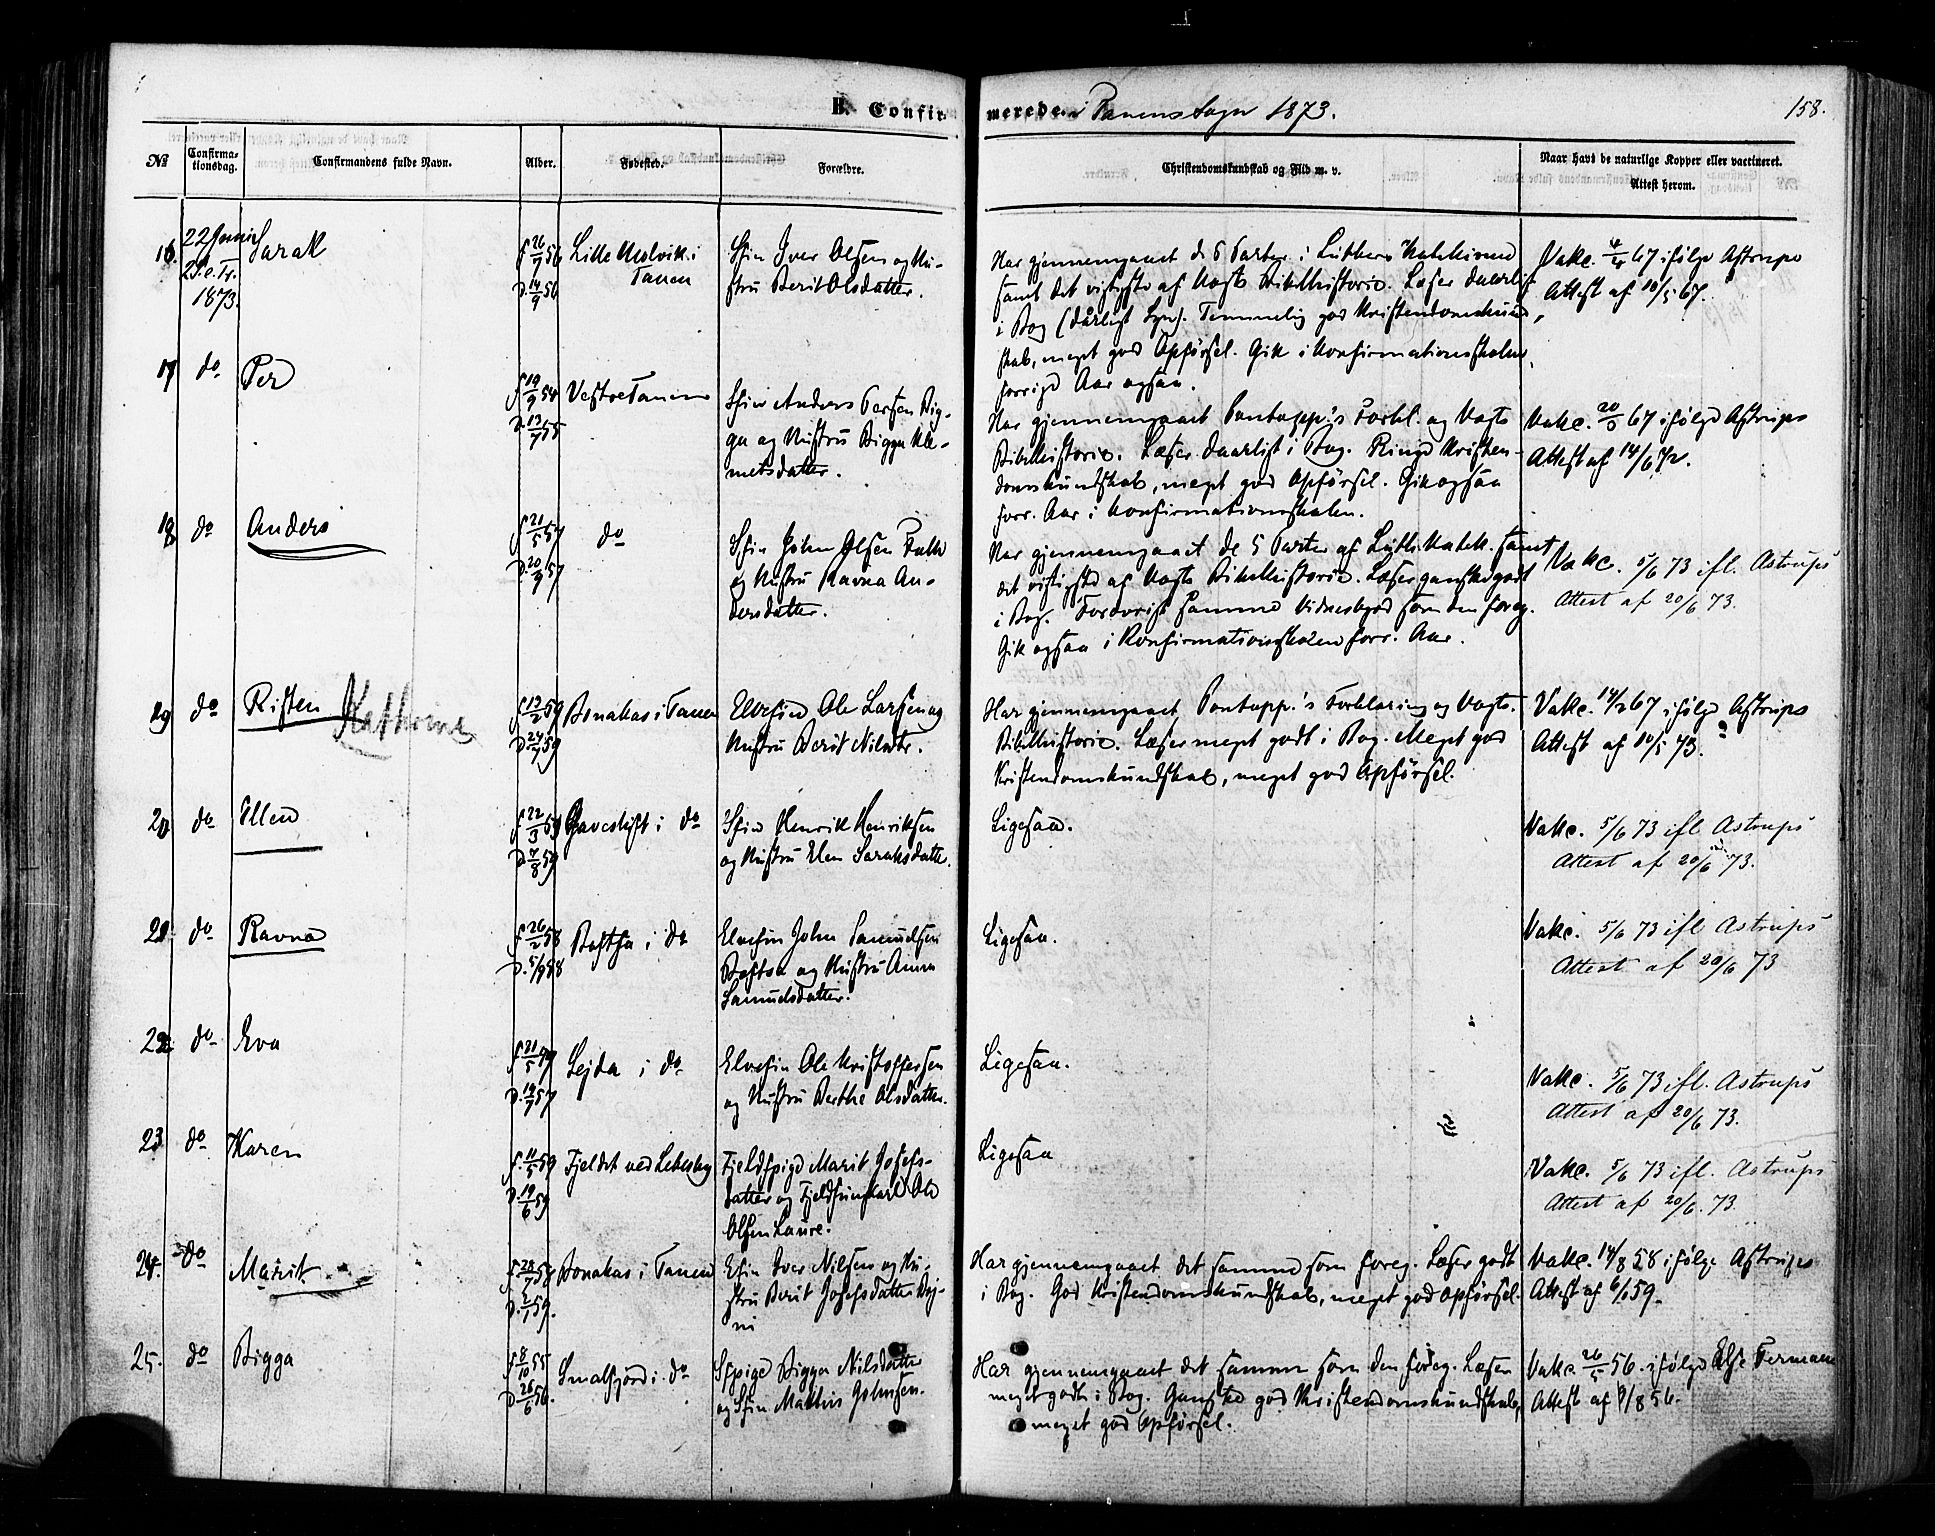 B. Confirmerede. i Tanens Sogn 1873. 158.
No Confirmationsdag. Confirmandens fulde Navn. Alder. Fødested. Forældre. Christendomskundskab og Flid m. v. Naar havt de naturlige Kopper eller vaccineret. Attest herom.
16. 22 Juni 1873. Sarak
f. 26/7 56
D. 14/9 56
Lille Molvik i
Tanen
Sfin Iver Olsen og Hu-
stru Berit Olsdatter.
Har gjennemgaaet de 5 Parter i Luthers Katekisme
samt det vigtigste af Vogts Bibelhistorie. Læser daarligt
i Bog (dårligt Syn). Temmelig god Kristendomskund-
skab, meget god Opførsel. Gik i Konfirmationsskolen
forrige Aar ogsaa.
Vakc. 4/4 67 ifølge Astrups
Attest af 10/5 67.
17 do Per
f. 19/9 54
D. 13/7 55
Vestre Tanen
Sfin Anders Persen Big-
ga og Hustru Bigga Kle-
metsdatter.
Har gjennemgaaet Pontopp.'s Forkl. og Vogts
Bibelhistorie. Læser daarligt i Bog. Ringe Kristen-
domskundskab, meget god Opførsel. Gik ogsaa
forr. Aar i Konfirmationsskolen.
Vakc. 67 ifølge Astrups
Attest af 14/6 72.
18 do Anders
f. 21/5 57
D. 20/9 57
do
Sfin John Olsen
og Hustru Ravna An-
dersdatter.
Har gjennemgaaet de 5 Parter af Luth. Katek. samt
det vigtigste af Vogts Bibelhistorie. Læser ganske godt
i Bog. Forøvrigt samme Vidnesbyrd som den foreg.
Gik ogsaa i Konfirmationsskolen forr. Aar.
Vakc. 5/6 73 ifl. Astrups
Attest af 20/6 73.
19 do Risten Kathrine
f. 13/2 59
D. 24/7 59
Bonakas i Tanen
Elvefin Ole Larsen og
Hustru Berit Nilsdtr.
Har gjennemgaaet Pontopp.'s Forklaring og Vogts
Bibelhistorie. Læser meget godt i Bog. Meget god
Kristendomskundskab, meget god Opførsel.
Vakc. 14/2 67 ifølge Astrups
Attest af 10/5 73.
20 do Ellen
f. 22/3 59
D. 7/8 59
Gavesluft i do
Sfin Henrik Henriksen
og Hustru Elen Saraksdatter.
Ligesaa.
Vakc. 5/6 73 ifl. Astrups
Attest af 20/6 73.
21 do Ravna
f. 26/2 58
D. 5/9 58
Boftsa i do
Elvefin John Samuelsen
Boftsa og Hustru Anna
Samuelsdatter.
Ligesaa.
Vakc. 5/6 73 ifl. Astrups
Attest af 20/6 73
22 do Eva
f. 21/5 57
D. 19/7 57
Sejda i do
Elvefin Ole Kristoffersen
og Hustru Berthe Olsdatter.
Ligesaa.
Vakc. 5/6 73 ifl. Astrups
Attest af 20/6 73.
23 do Karen
f. 11/5 59
D. 19/6 59
Fjeldet ved Lebesby
Fjeldpige Marit Josefs-
datter og Fjeldfinkarl Ole
Olsen Laure.
Ligesaa
Vakc. 5/6 73 ifl. Astrups
Attest af 20/6. 73.
24. do Marit
Bonakas i Tanen
Efin Iver Nilsen og Hu-
stru Berit Josefsdatter Boj-
ni
Har gjennemgaaet det samme som foreg. Læser godt
i Bog. God Kristendomskundskab, meget god Opførsel.
Vakc. 14/8 58 ifølge Astrups
Attest af 6/1 59.
25. do Bigga
f. 8/10 55
D. 26/6 56.
Smalfjord i do
Sfpige Bigga Nilsdatter
og Sfin Mathis Johnsen.
Har gjennemgaaet det samme som den foreg. Læser
meget godt i Bog. Ganske god Kristendomskundskab,
meget god Opførsel.
Vakc. 26/5 56. ifølge Else Fermann
Attest af 9/8 56.